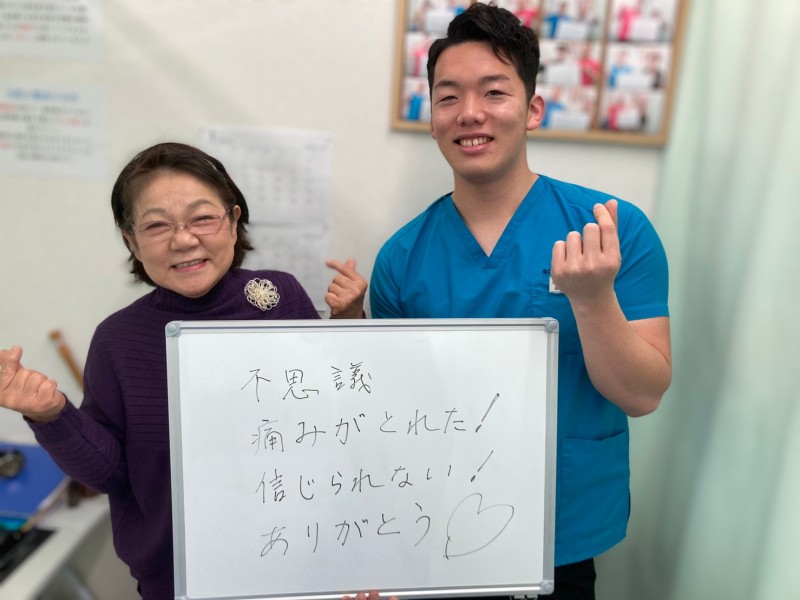 不思議
痛みがとれた!
信じられない!
ありがとう